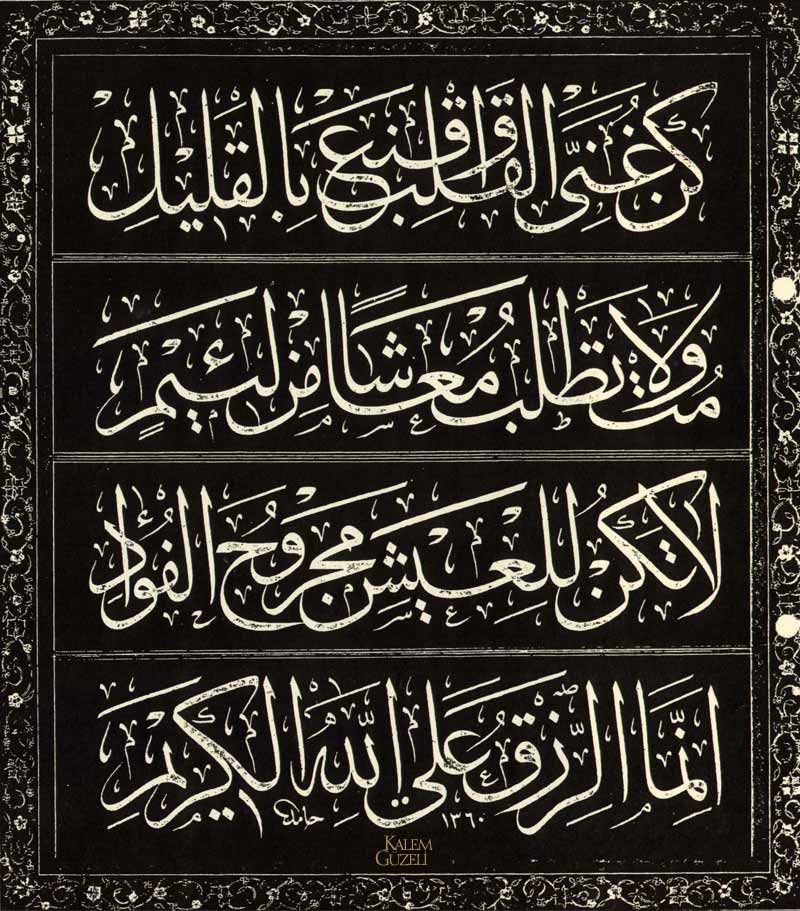 كن غني القلب واقنع بالقليل
مت ولا تطلب معاشا من لئيم
لا تكن للعيش مجروح الفؤاد
انما الرزق على الله الكريم
حامد ١٣٦٠
KALEM
GÜZELİ